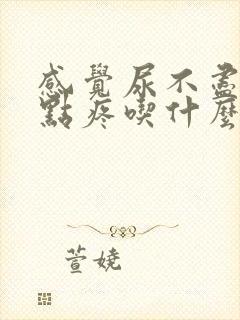 感覺尿不盡
點疼喫什麼
萱嬈